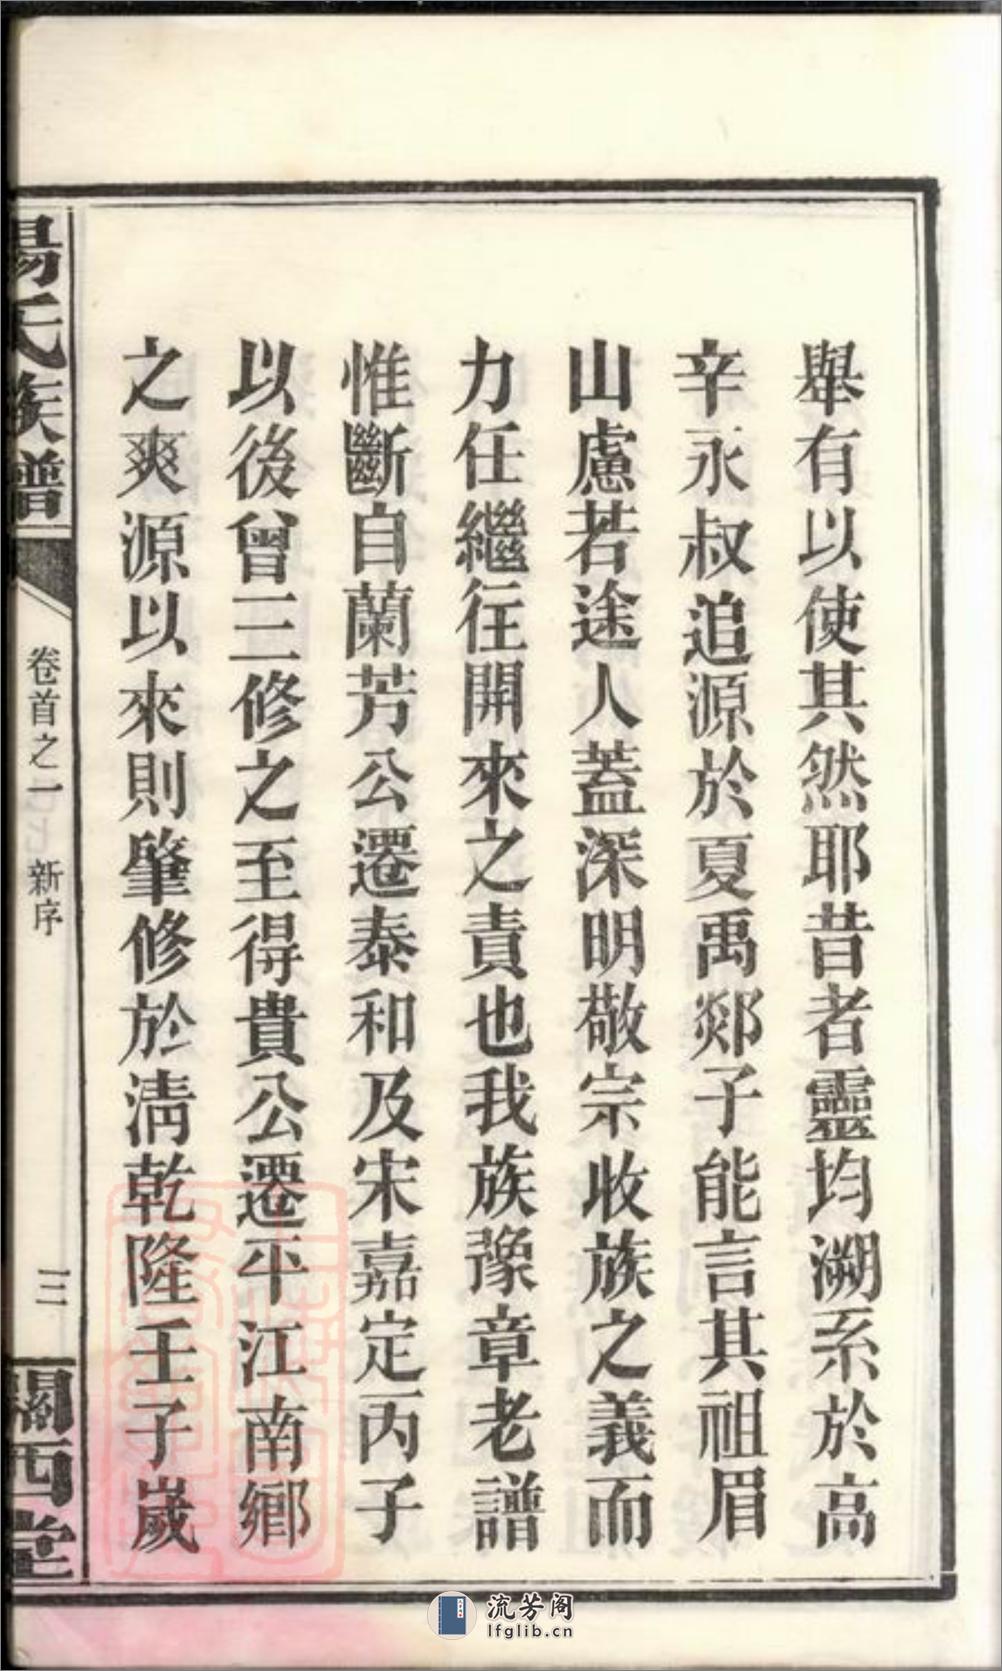 舉有以使其然耶昔者靈均溯系於高
辛永叔追源於夏禹郯子能言其祖眉
山慮若途人蓋深明敬宗收族之義而
力任繼往開來之責也我族豫章老譜
惟斷自蘭芳公遷泰和及宋嘉定丙子
以後曾三修之至得貴公遷平江南鄉
之爽源以來則肇修於淸乾隆壬子歲
楊氏族譜
卷首之一 新序
三
關西堂
流芳阁
lfglib.cn